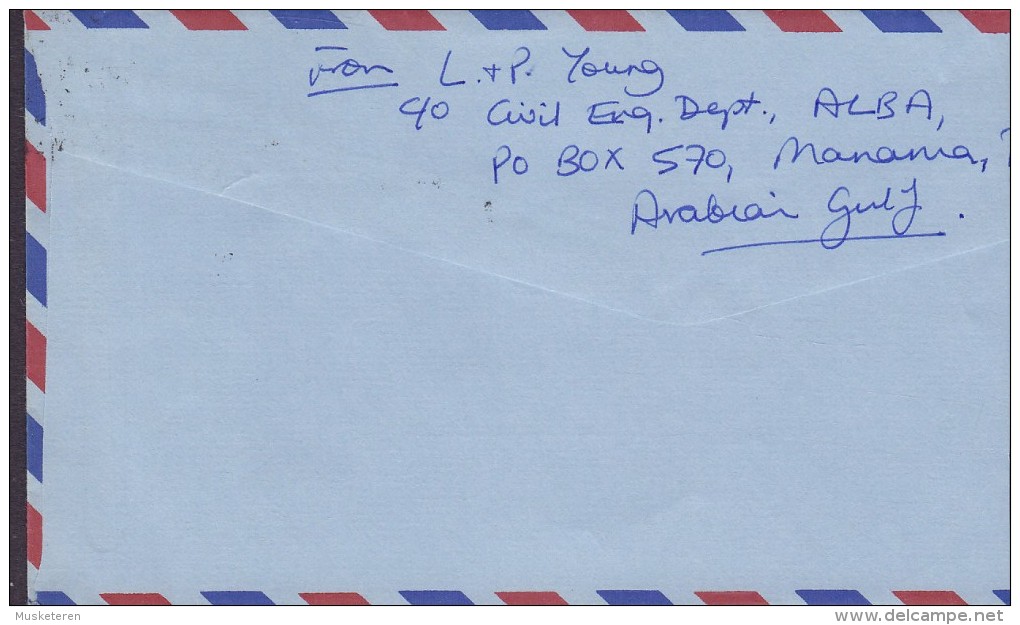 From L. + P. Young
c/o Civil Eng. Dept., ALBA,
PO BOX 570, Manama,
Arabian Gulf.
Musketeren
delcampe.net